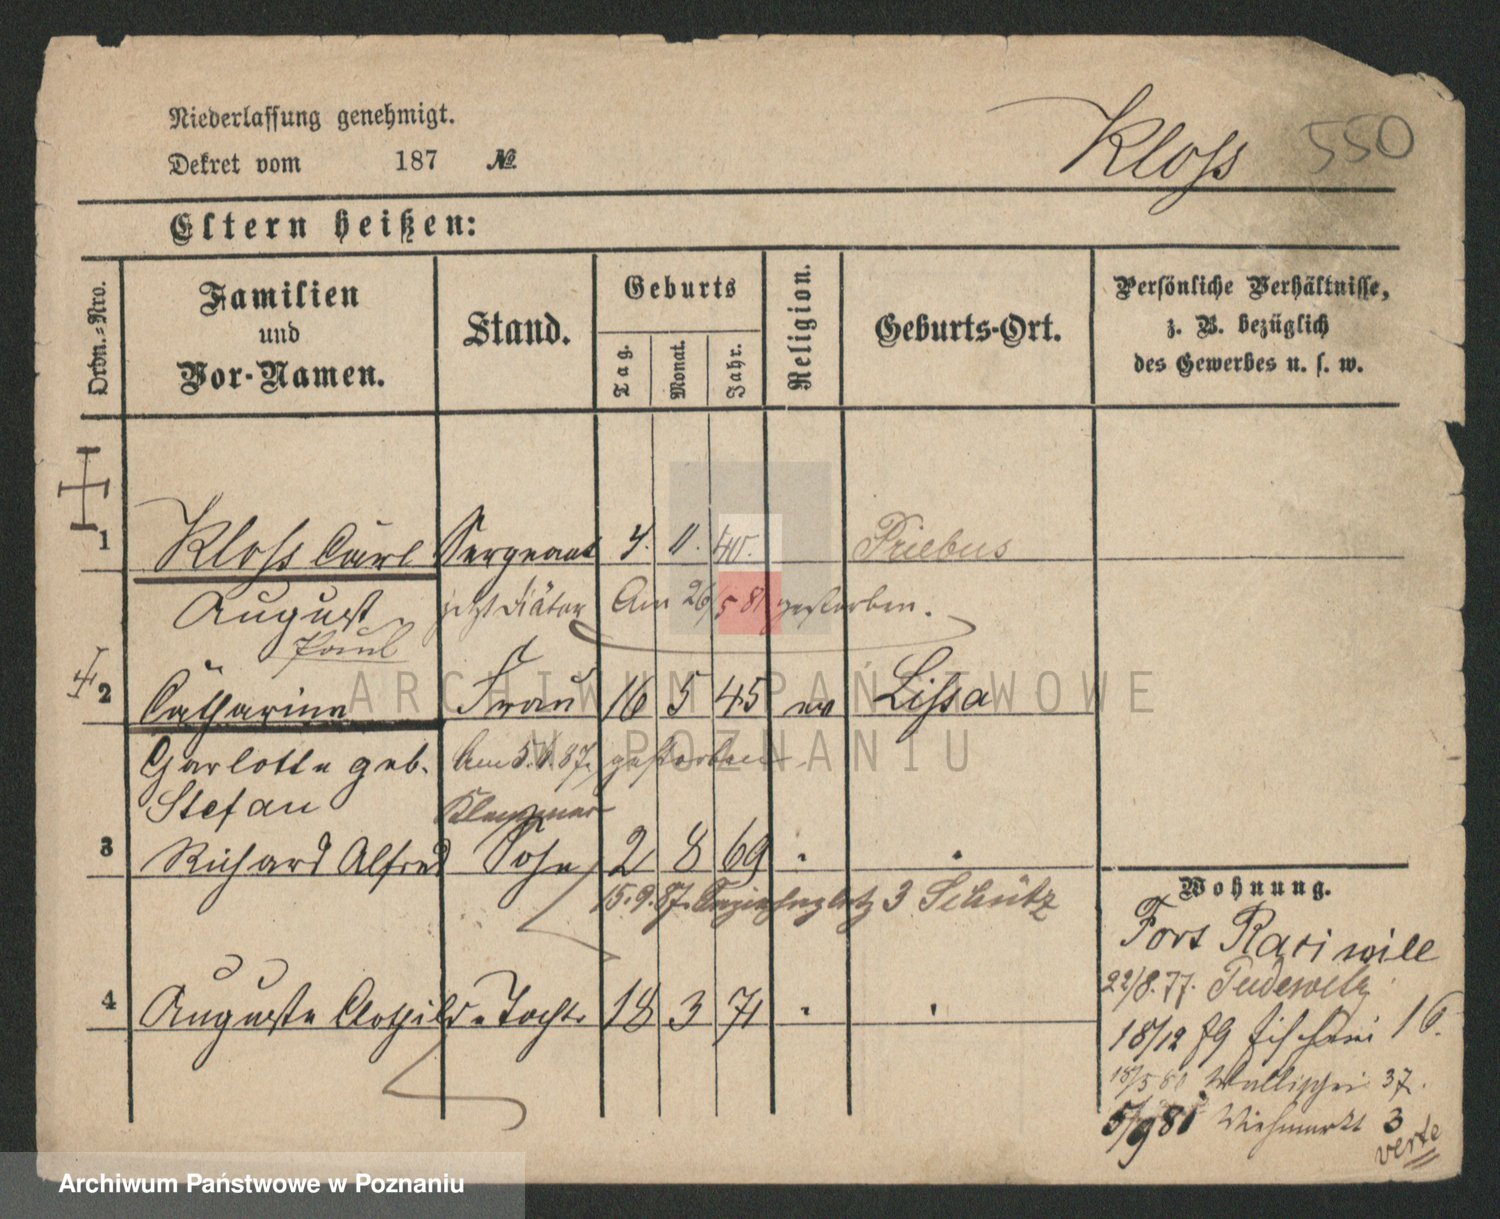 Niederlassung genehmigt.
Dekret vom 187 №
Kloss 550
Eltern heißen:
Ordn.-Nro.
Familien und Vor-Namen.
Stand.
Geburts
Tag. Monat. Jahr.
Religion.
Geburts-Ort.
Persönliche Verhältnisse, z. B. bezüglich des Gewerbes u. s. w.
1 Kloss Carl Sergeant 4. 11. 40. Priebus
August jetzt Diätar Am 26/5 81 gestorben.
Paul
2 Catharine Frau 16 5 45 ev Lissa
Carlotte geb. Am 5.1.87. gestorben
Stefan Klempner
3 Richard Alfred Sohn 2 8 69 " "
15.9.87. 3 Schütz
4 Auguste Clothilde Tochter 18 3 71 " "
Wohnung.
Fort Rariwill
22/8.77.
18/12 79 Fischerei 16.
18/5 80 Wallischei 37.
5/9 81 Viehmarkt 3
verte
ARCHIWUM PAŃSTWOWE
W POZNANIU
Archiwum Państwowe w Poznaniu